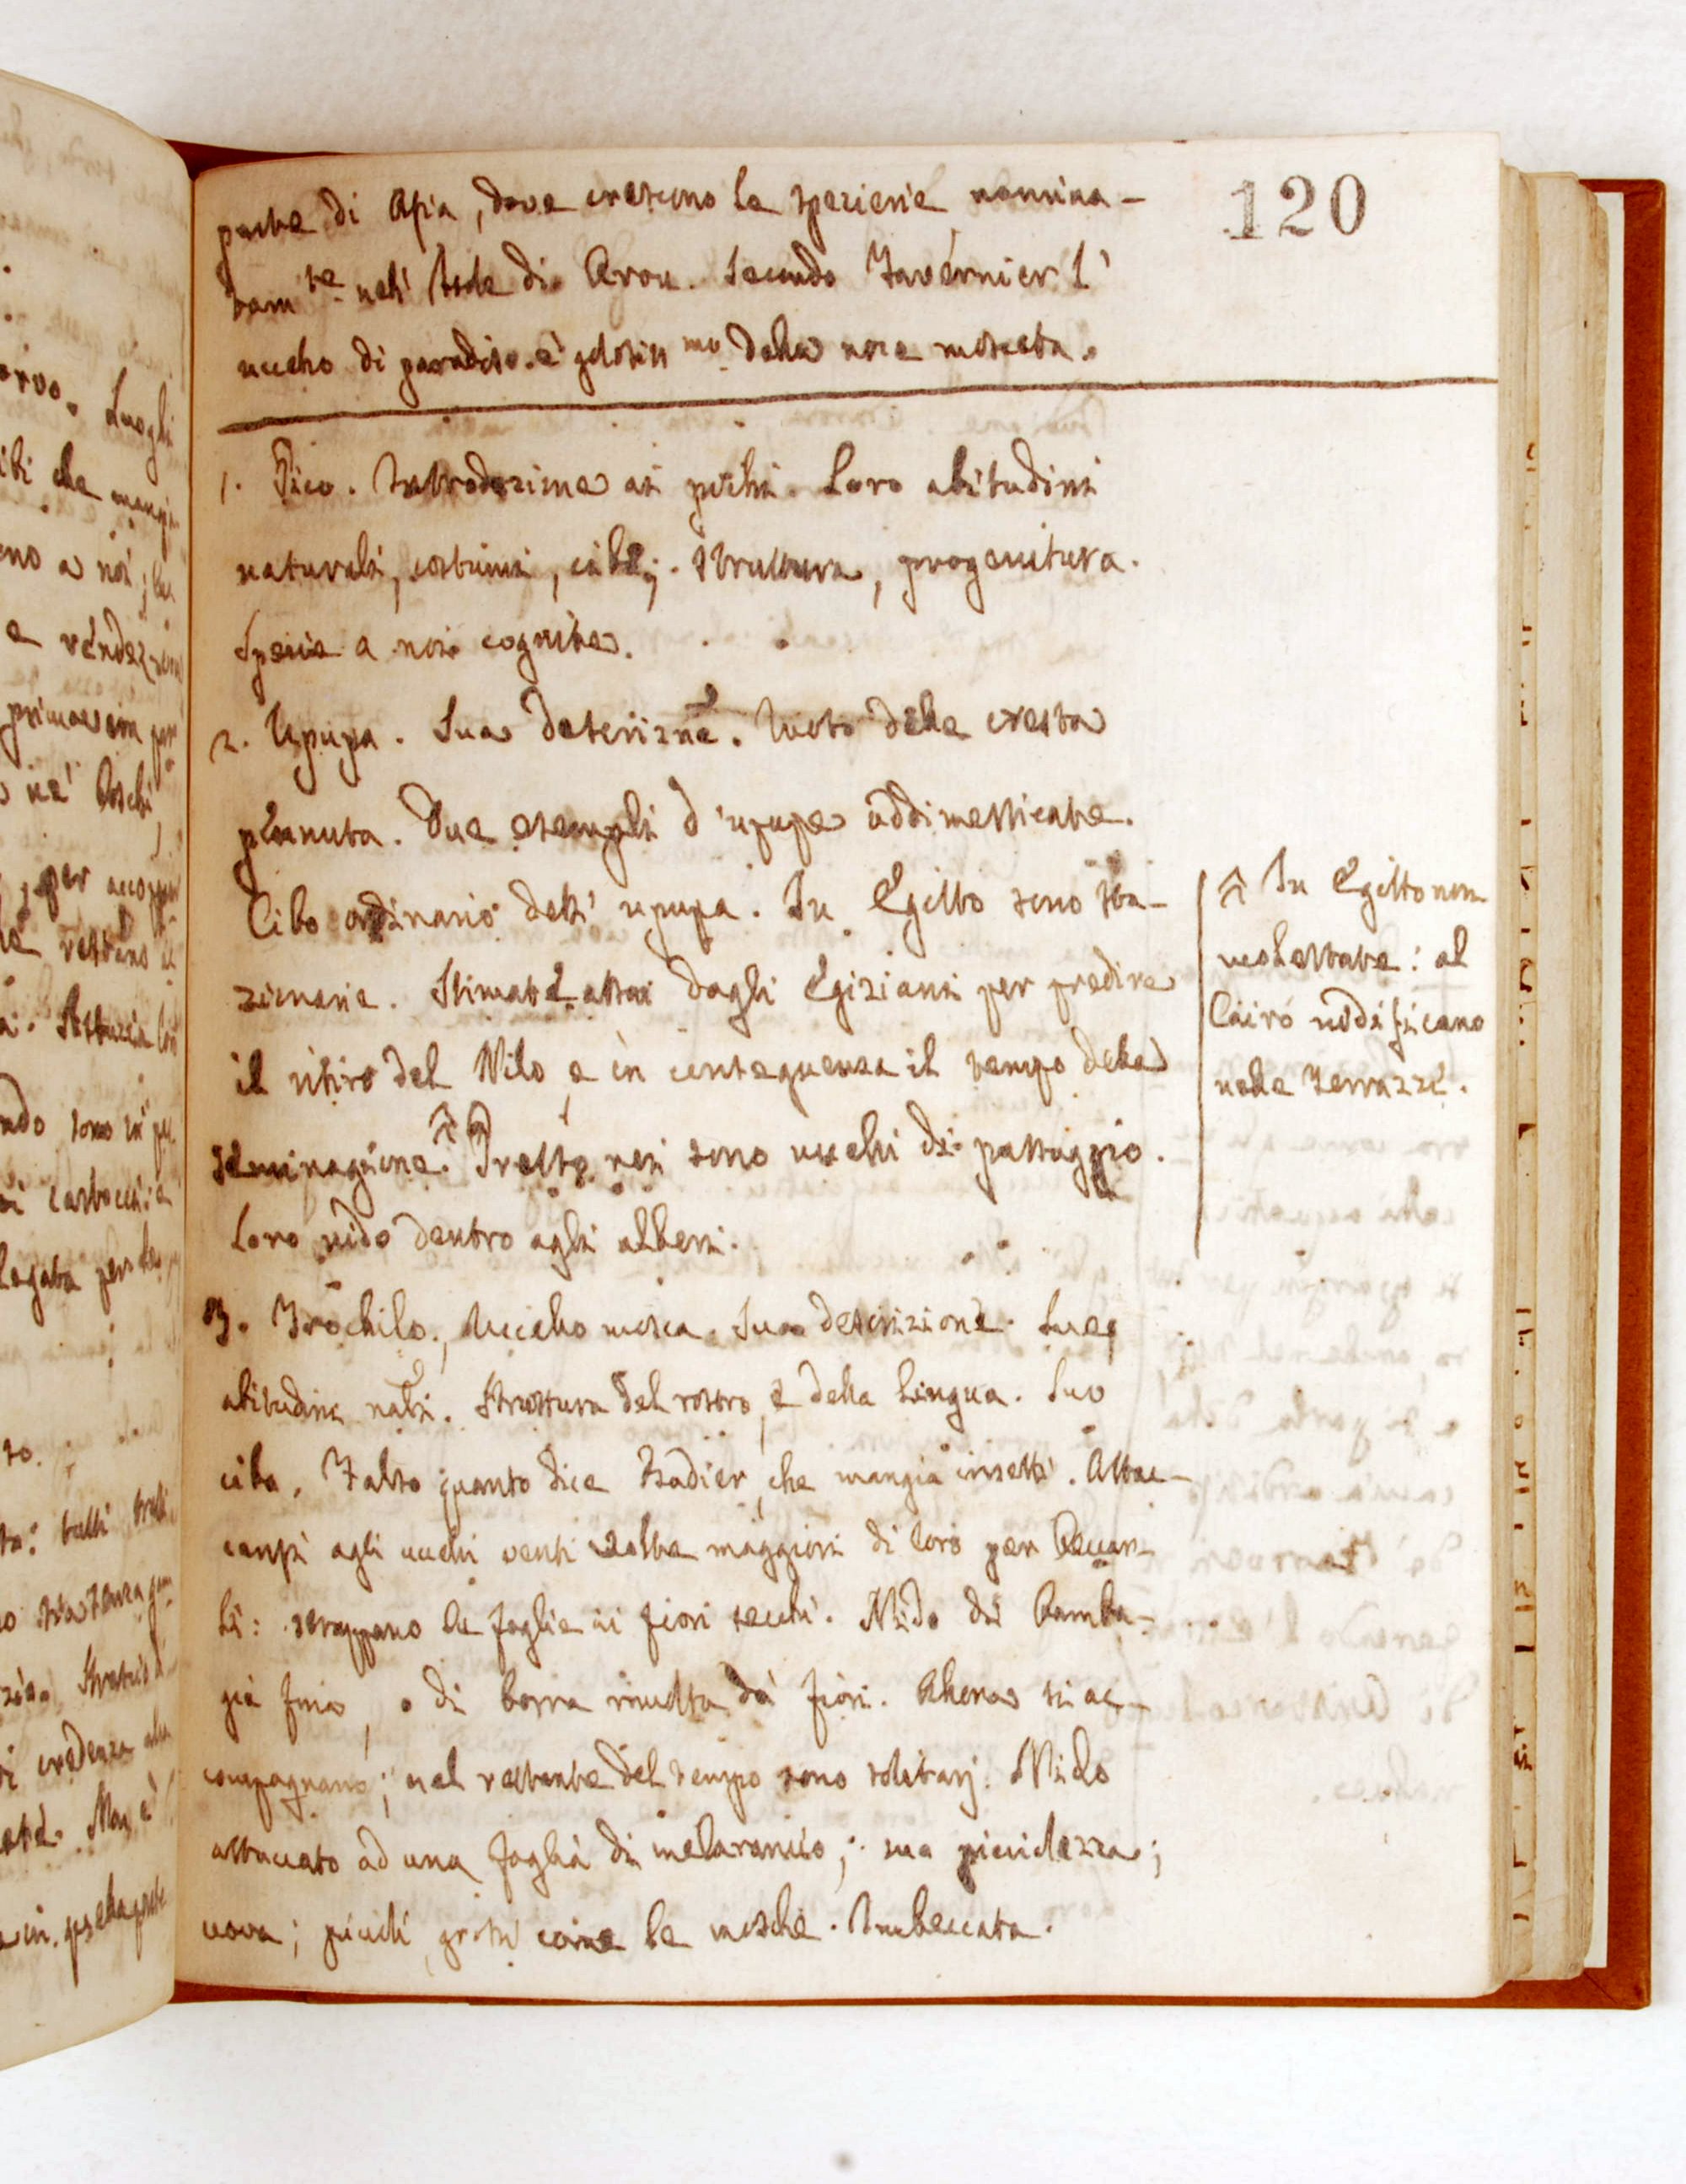 120
parte di Asia, dove crescono le spezierie nomina-
tam.te nell' Isole di Arou. Secondo Tavernier l'
uccello di paradiso è golosiss.mo della noce moscata.
1. Pico. Introduzione ai pichi. Loro abitudini
naturali, costumi, cibi. Struttura, progenitura.
Specie a noi cognite.
2. Upupa. Sua descrizne. Moto della cresta
piumuta. Due esempli d'upupe addimesticate.
Cibo ordinario dell' upupa. In Egitto sono sta-
zionarie. Stimate assai dagli Egiziani per predire
il ritiro del Nilo, e in conseguenza il tempo della
seminagione. ^ Presso noi sono uccelli di passaggio.
Loro nido dentro agli alberi.
^ In Egitto non
molestate: al
Cairo nidificano
nelle Terrazze.
3. Trochilo, Uccello mosca. Sua descrizione. Sue
abitudini nali. Struttura del rostro, e della lingua. Suo
cibo. Falso quanto dice Badier, che mangia insetti. Attac-
cansi agli uccelli venti volte maggiori di loro per beccar-
li: strappano le foglie ai fiori secchi. Nido di bamba-
gia fina, o di borra raccolta da' fiori. Allora si ac-
compagnano; nel restante del tempo sono solitarj. Nido
attaccato ad una foglia di melarancio; sua picciolezza;
uova; piccoli grossi come le mosche. Imbeccata.